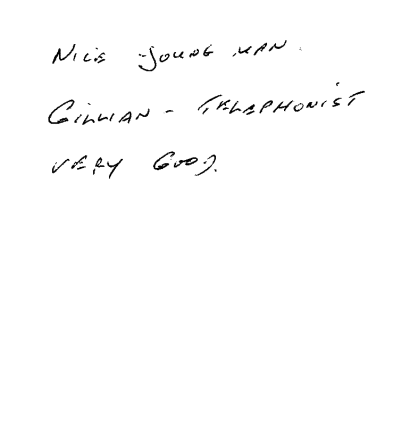 NICE YOUNG MAN.
GILLIAN - TELEPHONIST
VERY GOOD.